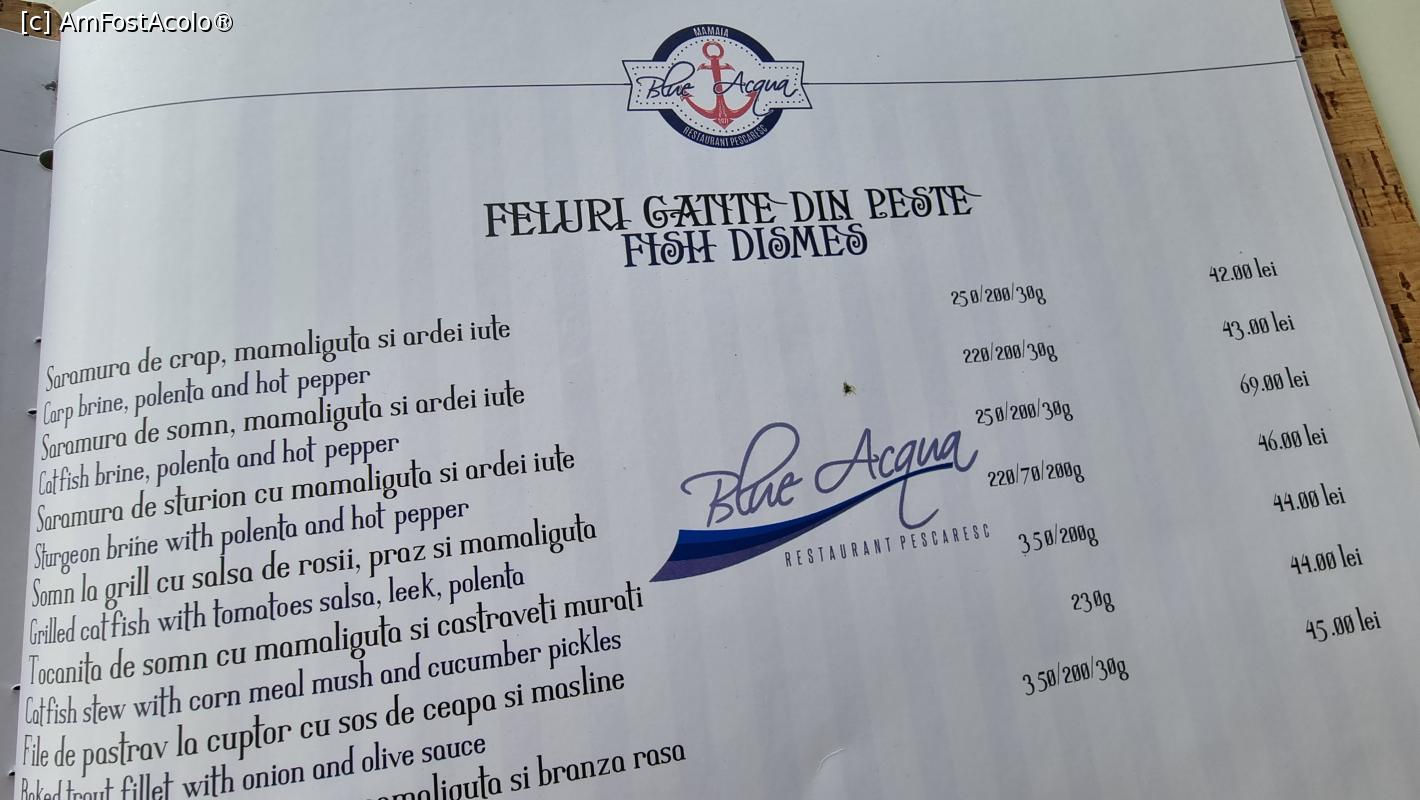 [c] AmFostAcolo®
MAMAIA
Blue Acqua
RESTAURANT PESCARESC
FELURI GATITE DIN PESTE
FISH DISMES
Saramura de crap, mamaliguta si ardei iute 250/200/30g 42.00 lei
Carp brine, polenta and hot pepper
Saramura de somn, mamaliguta si ardei iute 220/200/30g 43.00 lei
Catfish brine, polenta and hot pepper
Saramura de sturion cu mamaliguta si ardei iute 250/200/30g 69.00 lei
Sturgeon brine with polenta and hot pepper
Somn la grill cu salsa de rosii, praz si mamaliguta 220/70/200g 46.00 lei
Grilled catfish with tomatoes salsa, leek, polenta
Tocanita de somn cu mamaliguta si castraveti murati 350/200g 44.00 lei
Catfish stew with corn meal mush and cucumber pickles
File de pastrav la cuptor cu sos de ceapa si masline 230g 44.00 lei
Baked trout fillet with onion and olive sauce
mamaliguta si branza rasa 350/200/30g 45.00 lei
Blue Acqua
RESTAURANT PESCARESC